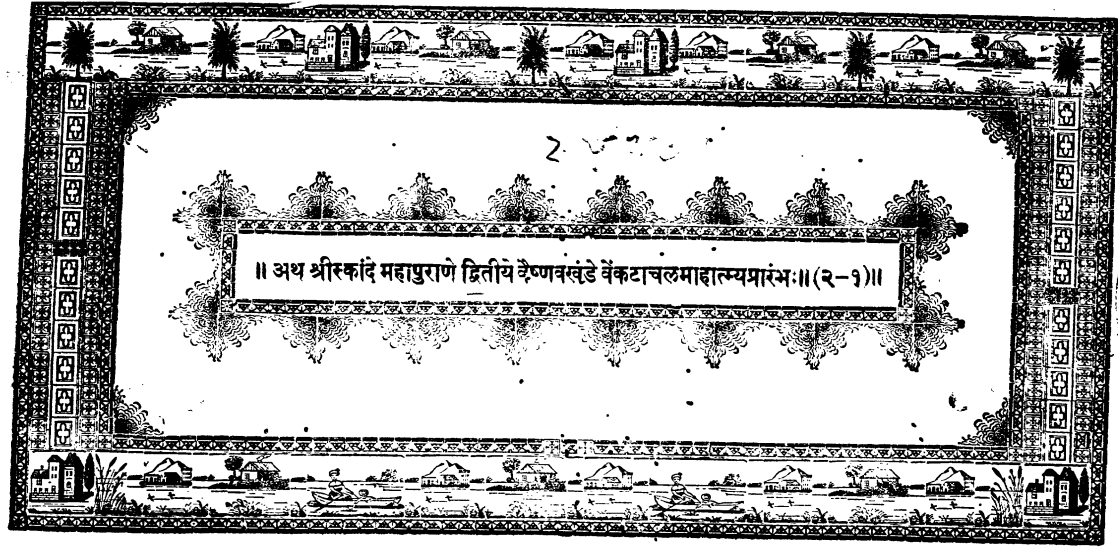 ॥ अथ श्रीस्कांदे महापुराणे द्वितीये वैष्णवखंडे वेंकटाचलमाहात्म्यप्रारंभः॥ (२-१)॥